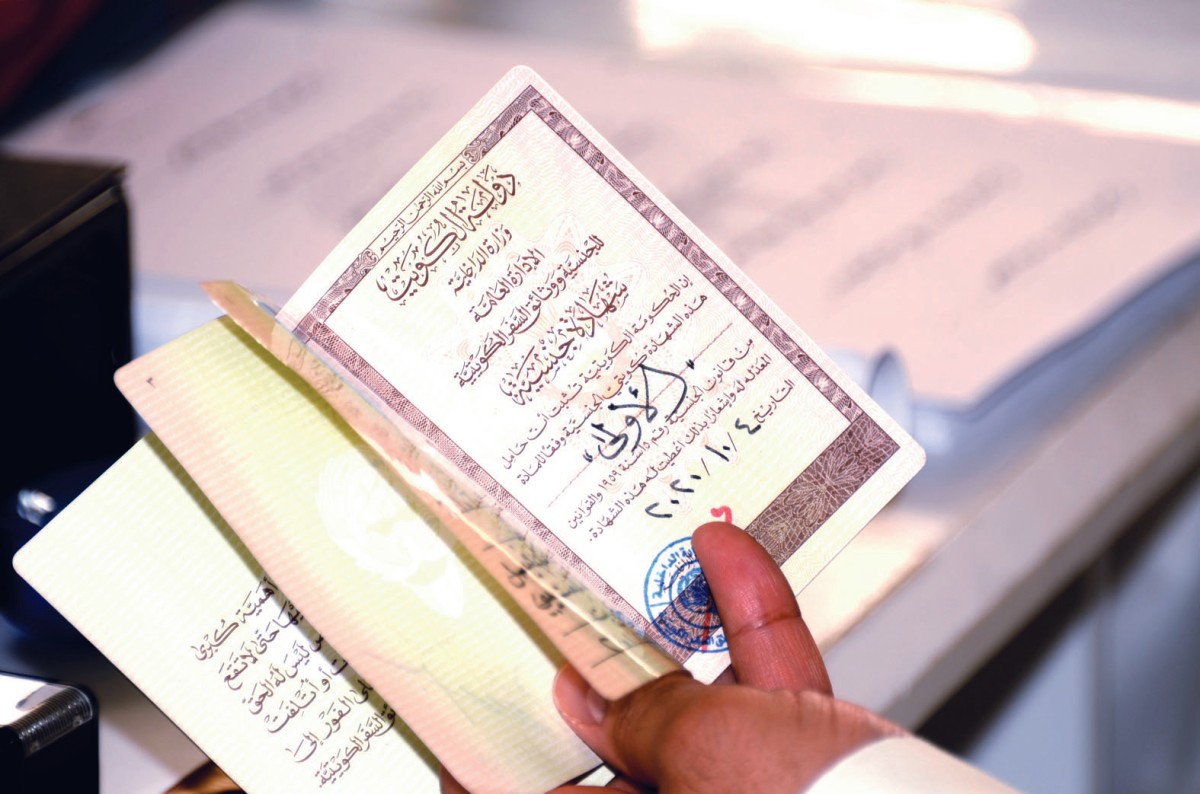 بسم الله الرحمن الرحيم
دولة الكويت
وزارة الداخلية
الإدارة العامة
للجنسية ووثائق السفر الكويتية
شهادة جنسية
إن الحكومة الكويتية تثبت أن حامل
هذه الشهادة كويتي الجنسية وفقا للمادة
"الأولى"
من قانون الجنسية رقم ١٥ لسنة ١٩٥٩ والقوانين
المعدلة له وإشعارا بذلك أعطيت له هذه الشهادة.
التاريخ ٢٠٢٠/١٠/٤
٣
أهمية كبرى
حتى لا تقع
ليس له الحق
أو أتلفت
الفور إلى
السفر الكويتية.